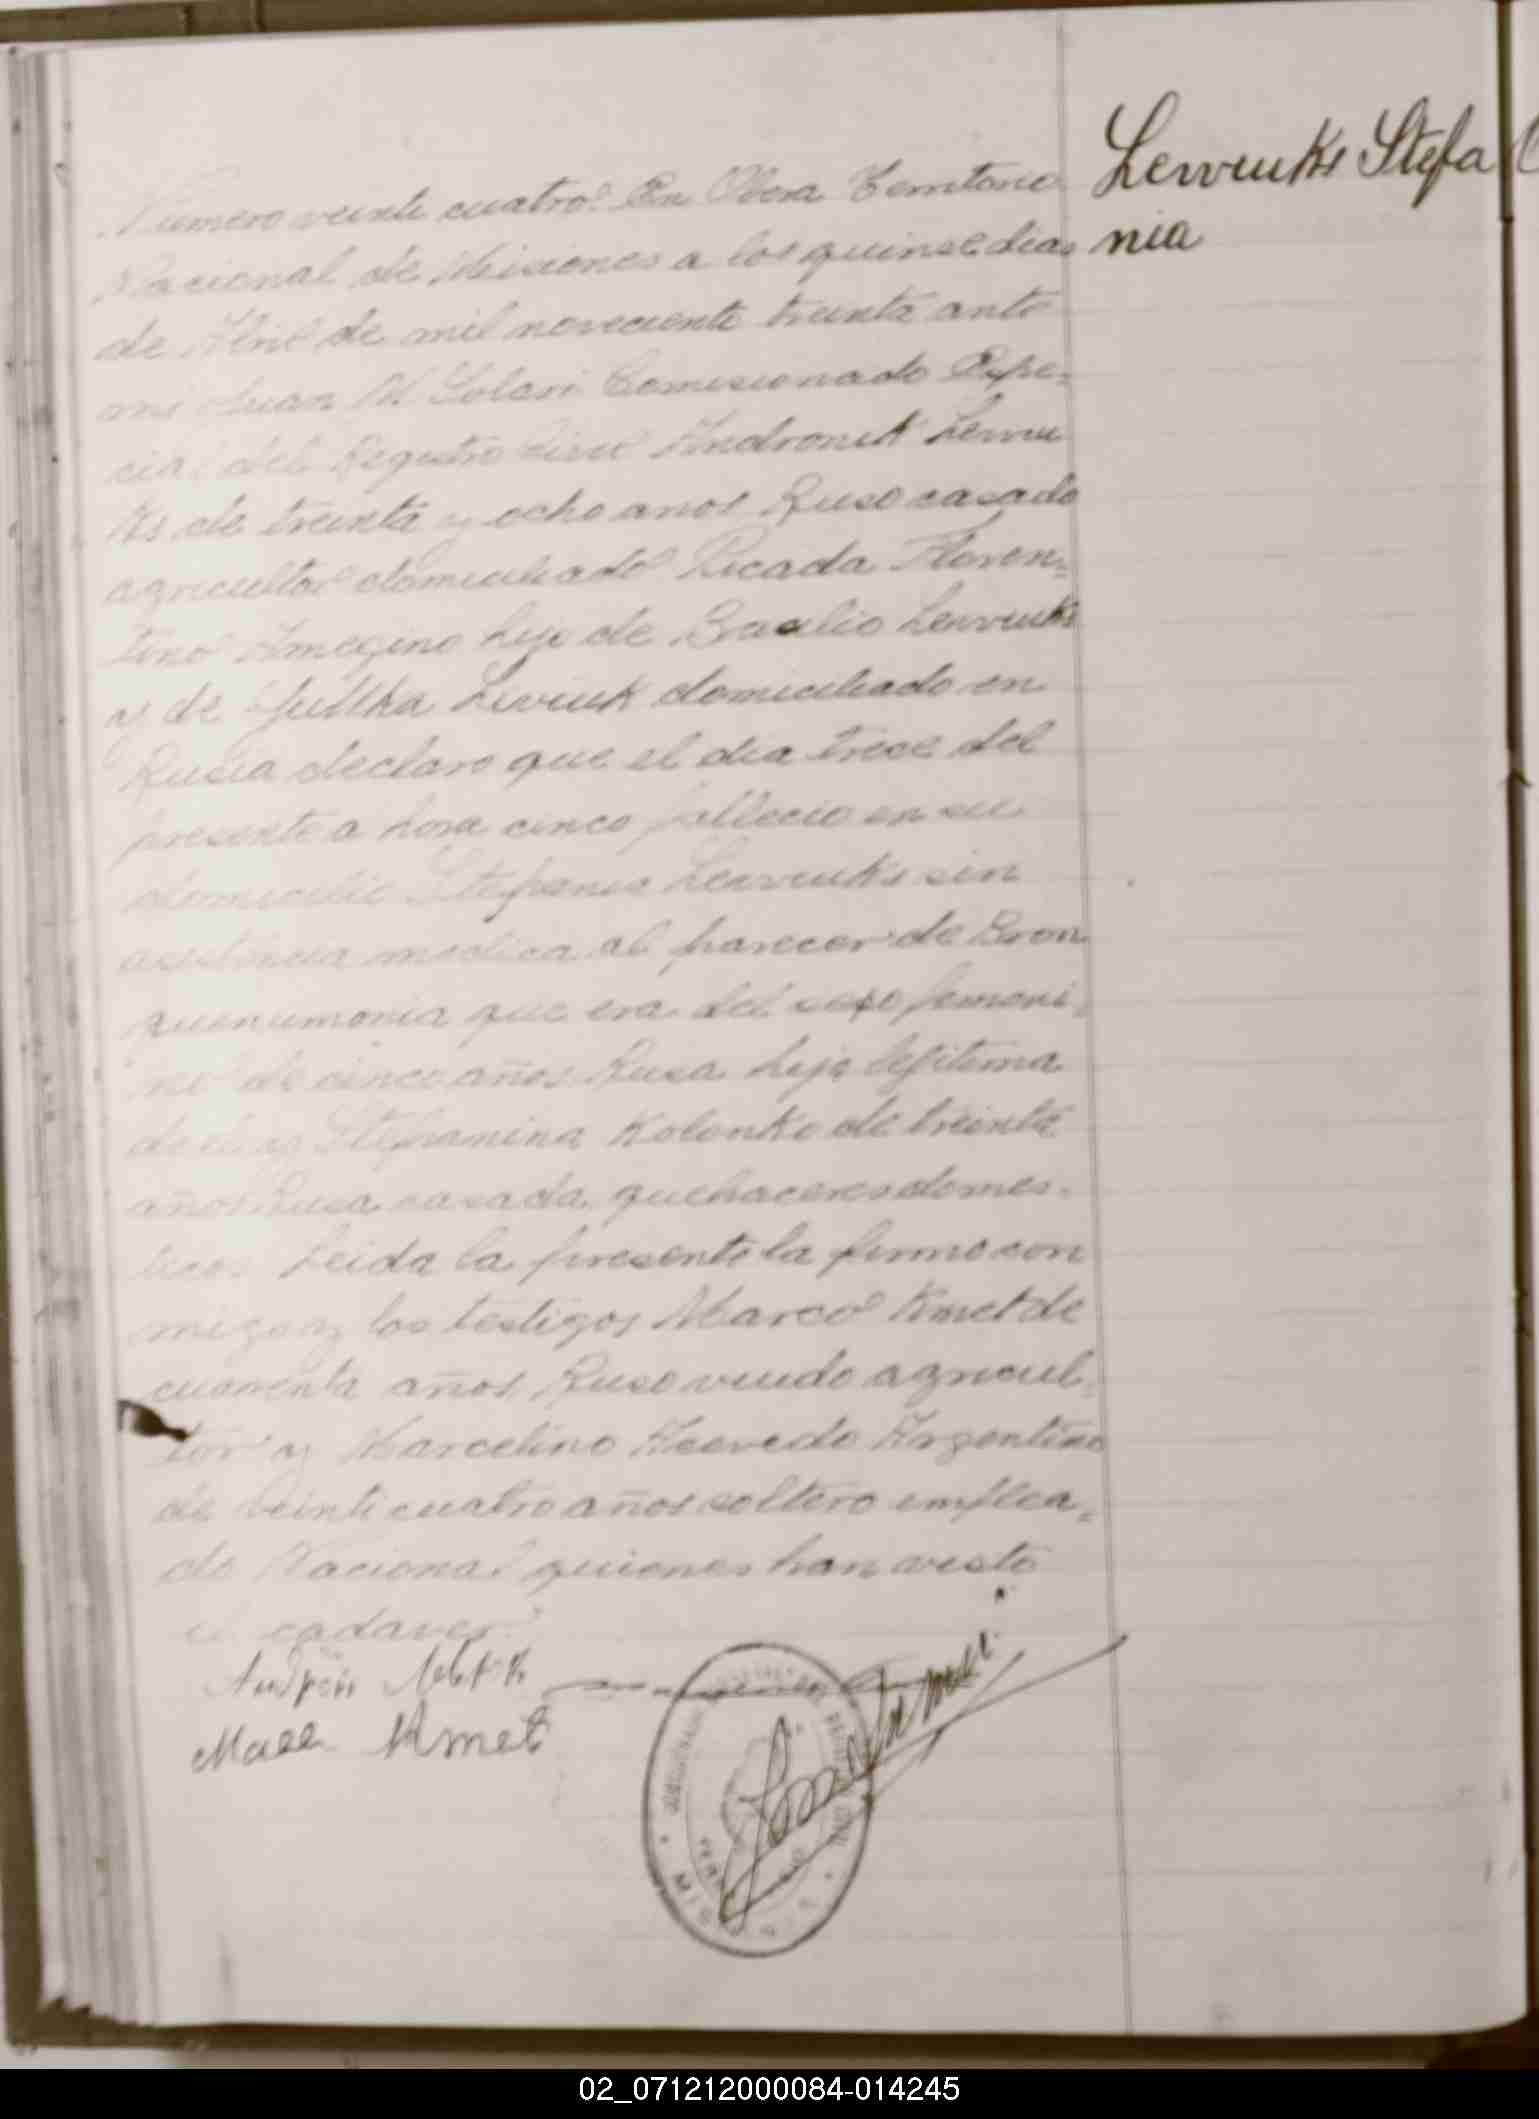 Lewuks Stefa
nia
Numero veinti cuatro. En Obera Territorio
Nacional de Misiones a los quinse dias
de Abril de mil noveciento treinta ante
mi Juan M Solari Comisionado Espe-
cial del Registro Civil Andronik Lewu
ks de treinta y ocho anos Ruso casado
agricultor domiciliado Picada Floren-
tino Amegino hijo de Basilio Lewuks
y de Lewuk domiciliado en
Rusia declaro que el dia trece del
presente a hora cinco fallecio en su
domicilio Stefania Lewuks sin
asistencia medica al parecer de Bron
quenumonia que era del sexo femeni-
no de cinco años Rusa hija lejitima
de el y Stefanina Kolonko de treinta
años Rusa casada quehaceres domes-
ticos Leida la presente la firmo con
migo y los testigos Marco Kmet de
cuarenta años Ruso viudo agricul-
tor y Marcelino Acevedo Argentino
de veinti cuatro años soltero emplea-
do Nacional quienes han visto
el cadaver.
Kmet
02_071212000084-014245